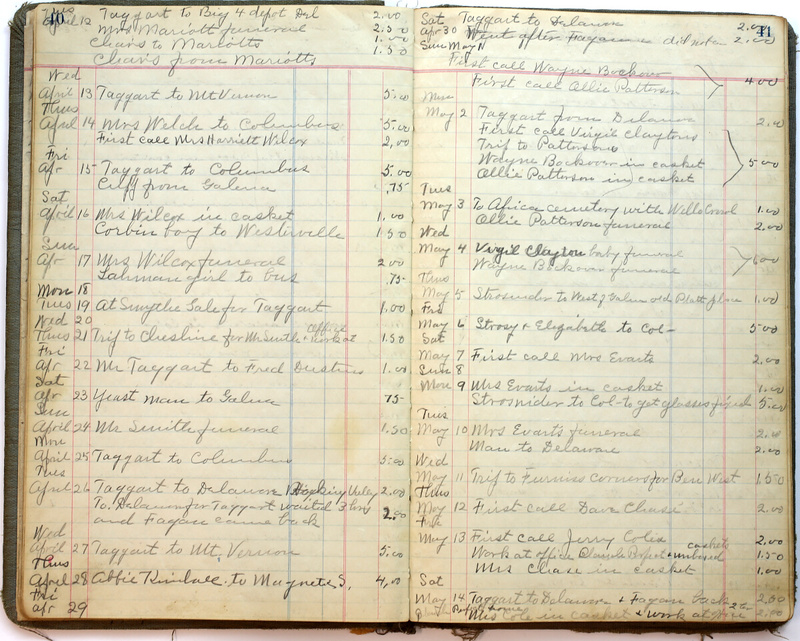 40
Tues
April 12 Taggart to Big 4 depot Del 2.00
Mrs Mariott funeral 2.50
Chairs to Mariotts 1.00
Chairs from Mariotts 1.50
Wed
April 13 Taggart to Mt Vernon 5.00
Thus
April 14 Mrs Welch to Columbus 5.00
First call Mrs Harriett Wilcox 2,00
Fri
Apr 15 Taggart to Columbus 5.00
from Galena .75
Sat
April 16 Mrs Wilcox in casket 1.00
Corbin boy to Westerville 1.50
Sun
Apr 17 Mrs Wilcox funeral 2.00
girl to bus .75
Mon 18
Tues 19 At Smythe Sale for Taggart 1.00
Wed 20
Thus 21 Trip to Cheshire for Mr Smith + work at office 1.50
Fri
Apr 22 Mr Taggart to Fred Dustins 1.00
Sat
Apr 23 Yeast man to Galena 75
Sun
April 24 Mr Smith funeral 1.50
Mon
April 25 Taggart to Columbus 5.00
Tues
April 26 Taggart to Delaware 2.00
To Delaware for Taggart waited 3 hrs
and Fagan came back 2.00
Wed
April 27 Taggart to Mt, Vernon 5.00
Thus
April 28 Abbie Kimball to Magnetic S, 4,00
Fri
apr 29
41
Sat
Apr 30 Taggart to Delaware 2.00
Went after Fagan did not 2.00
Sun May 1
First call Wayne Bockover
First call Ollie Patterson 4.00
Mon
May 2 Taggart from Delaware 2.00
First call Virgil Claytons
Trip to Pattersons
Wayne Bockover in casket 5.00
Ollie Patterson in casket
Tues
May 3 To Africa cemetery with 1.00
Ollie Patterson funeral 2.00
Wed
May 4 Virgil Clayton baby funeral
Wayne Bockover funeral 6.00
Thus
May 5 Strosnider to West of Galena old Platt place 1.00
Fri
May 6 Strosy + Elizabeth to Col- 5.00
Sat
May 7 First call Mrs Evarts 2.00
Sun 8
Mon 9 Mrs Evarts in casket 1.00
Strosnider to Col- to get glasses fixed 5.00
Tues
May 10 Mrs Evarts funeral 2.00
Man to Delaware 2.00
Wed
May 11 Trip to Furniss corners for Ben West 1.50
Thus
May 12 First call Dave Chase 2.00
Fri
May 13 First call Jerry Coles 2.00
Work at office + unboxed caskets 1.50
Mrs Chase in casket 1.00
Sat
May 14 Taggart to Delaware + Fagan back 2.00
Mrs Cole in casket + work at 2.00